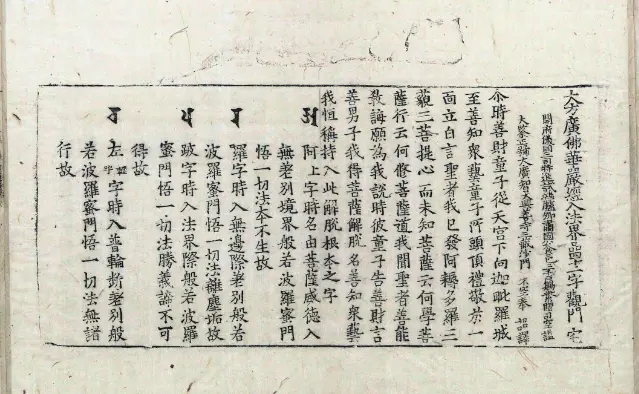 大方廣佛華嚴經入法界品四十二字觀門 宅
開府儀同三司特進試鴻臚卿肅國公食邑三千戶賜紫贈司空謚
大鑒正號大廣智大興善寺三藏沙門 不空奉 詔譯
尒時善財童子從天宮下向迦毗羅城
至善知衆藝童子所頭頂禮敬於一
面立白言聖者我已發阿耨多羅三
藐三菩提心而未知菩薩云何學菩
薩行云何修菩薩道我聞聖者善能
教誨願為我說時彼童子告善財言
善男子我得菩薩解脫名善知衆藝
我恒稱持入此解脫根本之字
阿上字時名由菩薩威德入
無差別境界般若波羅蜜門
悟一切法本不生故
羅字時入無邊際差別般若
波羅蜜門悟一切法離塵垢故
跛字時入法界際般若波羅
蜜門悟一切法勝義諦不可
得故
左字時入普輪斷差別般
若波羅蜜門悟一切法無諸
行故